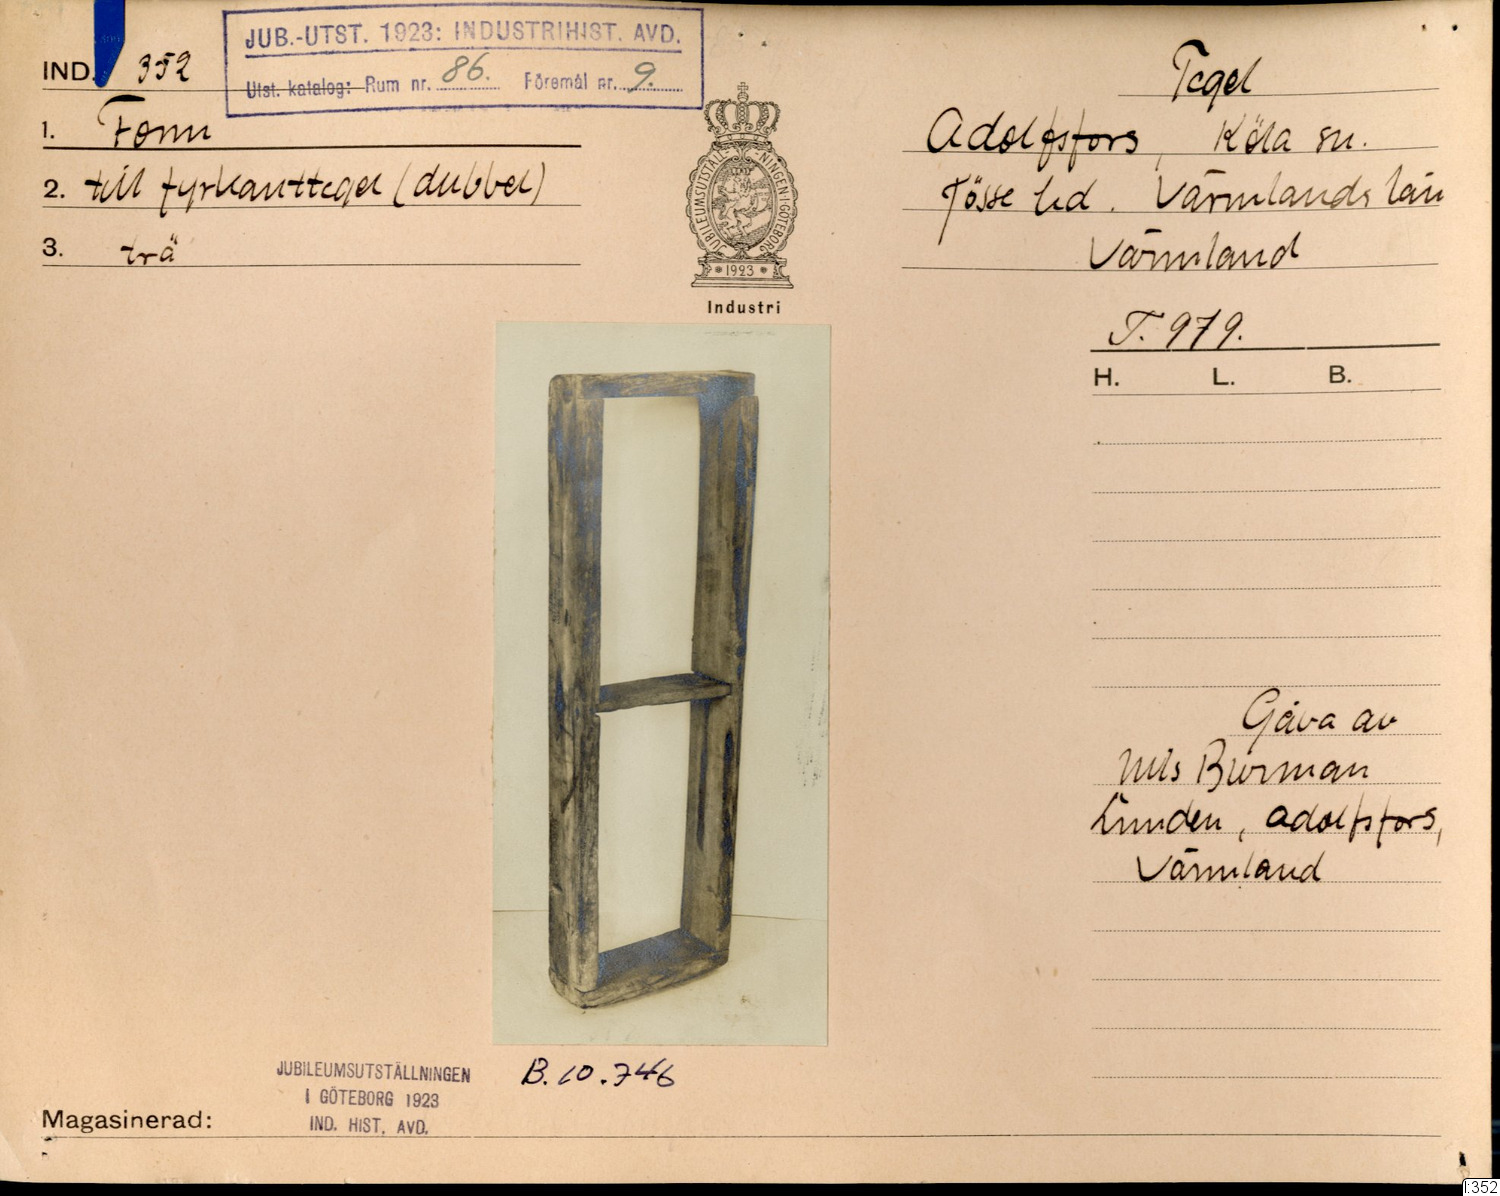 JUB.-UTST. 1923: INDUSTRIHIST. AVD.
Utst. katalog: Rum nr. 86. Föremål nr. 9.
IND. 352
1. Form
2. till fyrkanttegel (dubbel)
3. trä
JUBILEUMSUTSTÄLLNINGEN I GÖTEBORG
1923
Industri
Tegel
Adolfsfors, Köla sn.
Jösse hd. Värmlands län
Värmland
T. 979.
H. L. B.
Gåva av
Nils Burman
Lunden, Adolfsfors,
Värmland
JUBILEUMSUTSTÄLLNINGEN
I GÖTEBORG 1923
IND. HIST. AVD.
B.10.746
Magasinerad:
I:352